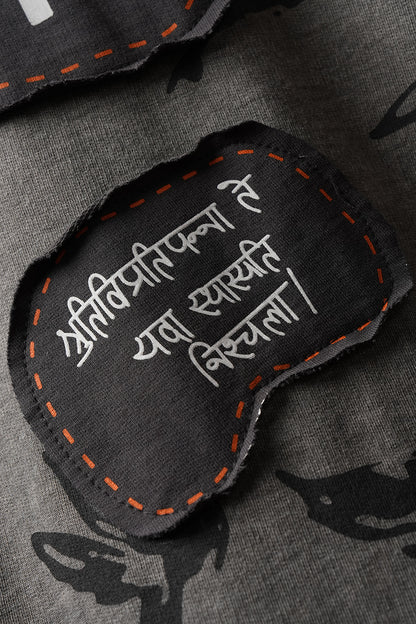 श्रुतिविप्रतिपन्ना ते
यदा स्थास्यति
निश्चला।